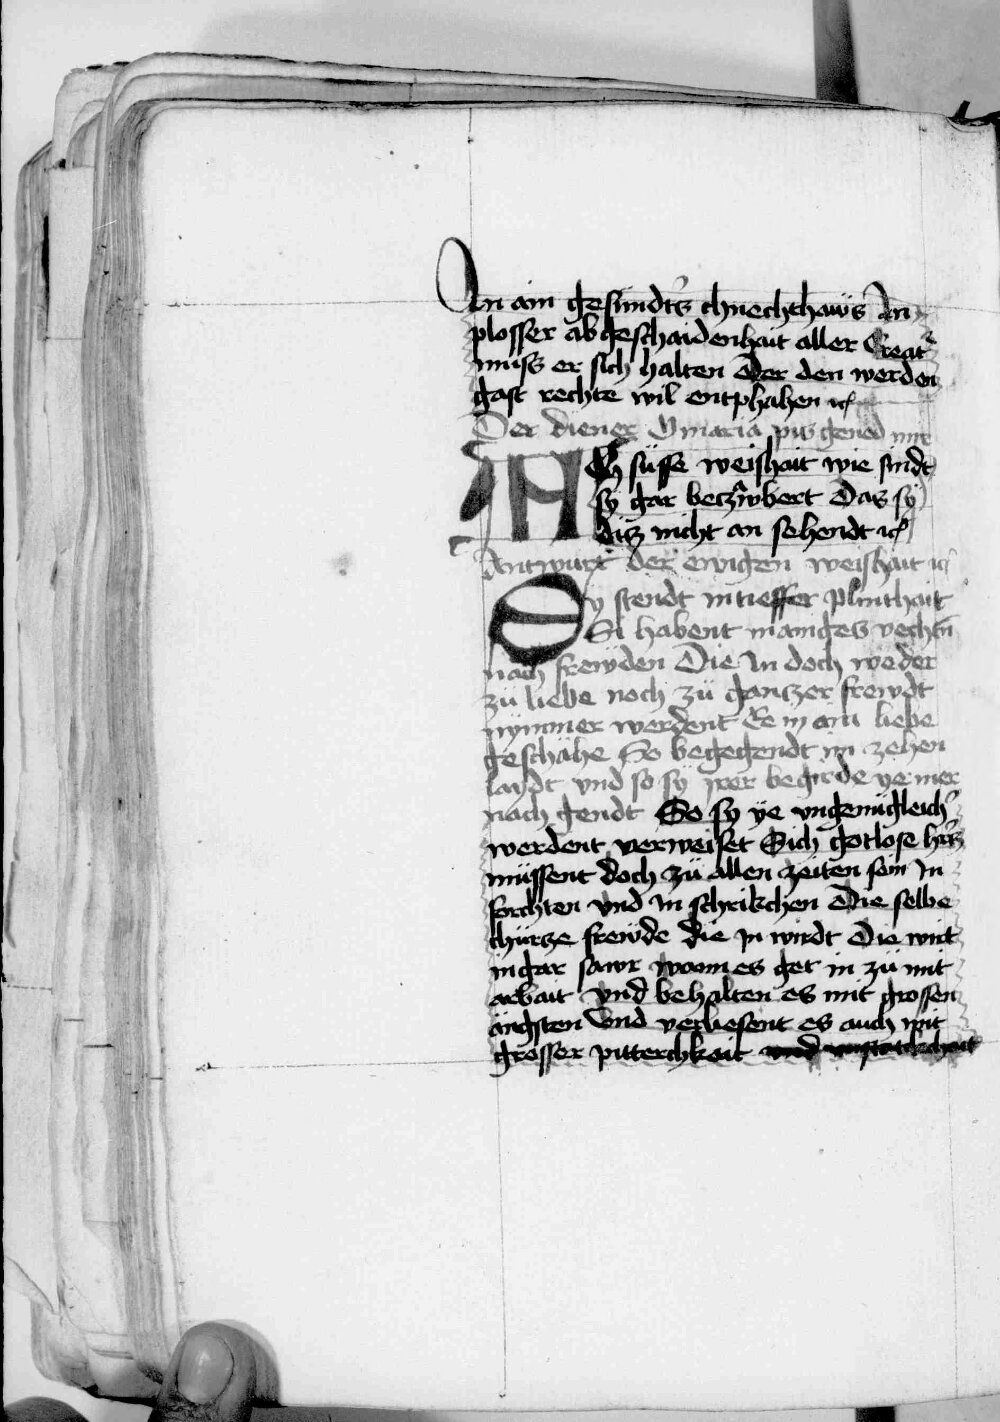 In ain gesundters chnechthaws In
plosser abgeschaidenhait aller Creatˀ
muss er sich halten Der den werden
gast rechte wil entphahen ⁊c̃
Der diener O maria pis gened mir
ACh süsse weishait wie sindt
sy gar beczawbert Das sÿ
dis nicht an sehendt ⁊c̃
Antwurt der ewigen weishait ⁊c̃
Sy stendt in tieffer plinthait
Si habent maniges vechtn̄
nach frewden Die In doch weder
zü liebe noch zü gantzer frewdt
nymmer werdent Ee in ain liebe
geschähe So begegendt im zehen
laydt vnd so sÿ irer begirde ye mer
nach gendt So sy ye vngenügleichˀ
werdent verweiset Sich gotlose hˀtz
müssent doch zü allen zeiten sein In
forchten vnd In schrikchen Die selbe
chürtze frewde die In wirdt Die wirt
in gar sawr wann es get in zü mit
arbait vnd behalten es mit grossen
ängsten vnd verliesent es auch mit
grosser pitterchkait